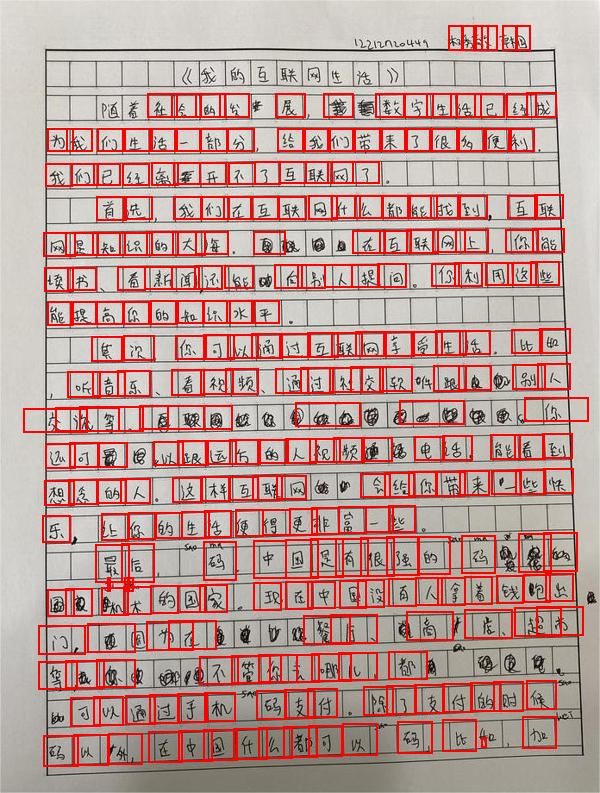 12212720449 韩国
《我的互联网生活》
随着社会的发展，数字生活已经成
为我们生活一部分，给我们带来了很多便利．
我们已经离开不了互联网了．
首先，我们在互联网什么都能找到，互联
网是知识的大海．在互联网上，你能
读书、看新闻，还能向别人提问．你利用这些
能提高你的知识水平．
其次，你可以通过互联网享受生活．比如
，听音乐、看视频、通过社交软件跟别人
交流等．你
还可以跟远方的人视频通话电话，能看到
想念的人．这样互联网会给你带来一些快
乐，让你的生活便得更非富一些．
最后，sao ma 码．中国是有很强的码的
国家．现在中国没有人拿着钱包出
门，因为在餐厅、商店、超市
等，不管你去哪儿，都
可以通过手机sao码支付．除了支付的时候sao
码以外，在中国什么都可以sao码，比如，加